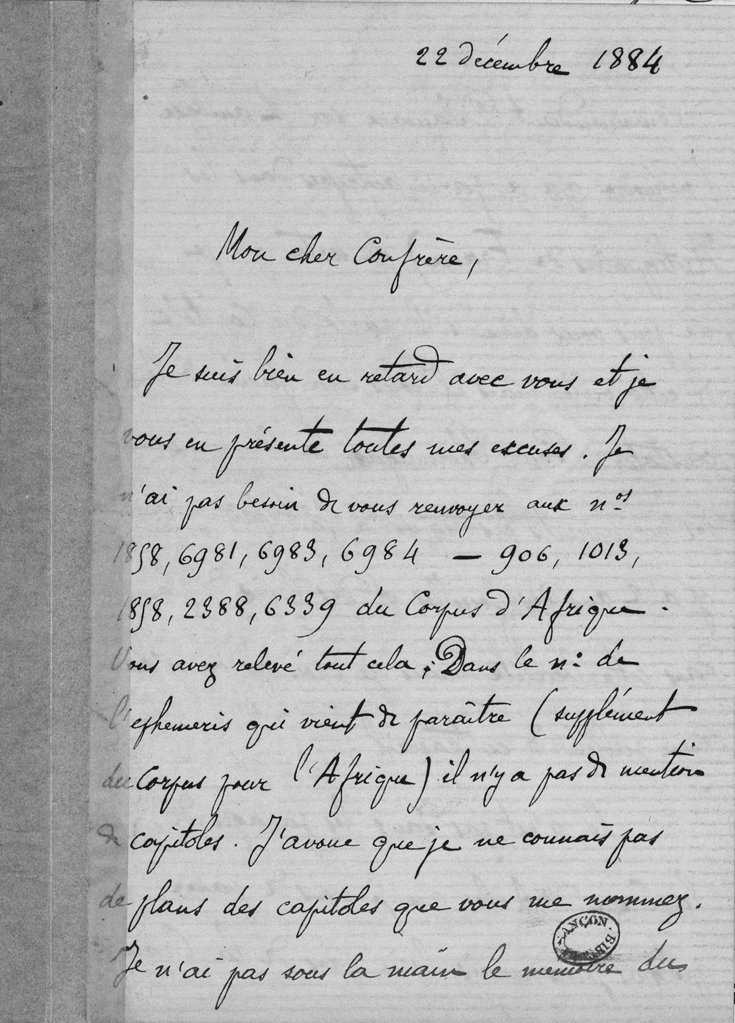 22 décembre 1884
Mon cher Confrère,
Je suis bien en retard avec vous et je
vous en présente toutes mes excuses. Je
n'ai pas besoin de vous renvoyer aux nos
1858, 6981, 6983, 6984 — 906, 1013,
1858, 2388, 6339 du Corpus d'Afrique.
Vous avez relevé tout cela. Dans le no. de
l'ephemeris qui vient de paraître (supplément
du Corpus pour l'Afrique) il n'y a pas de mention
de capitoles. J'avoue que je ne connais pas
de plans des capitoles que vous me nommez.
Je n'ai pas sous la main le memoire du
SANÇON. BIB